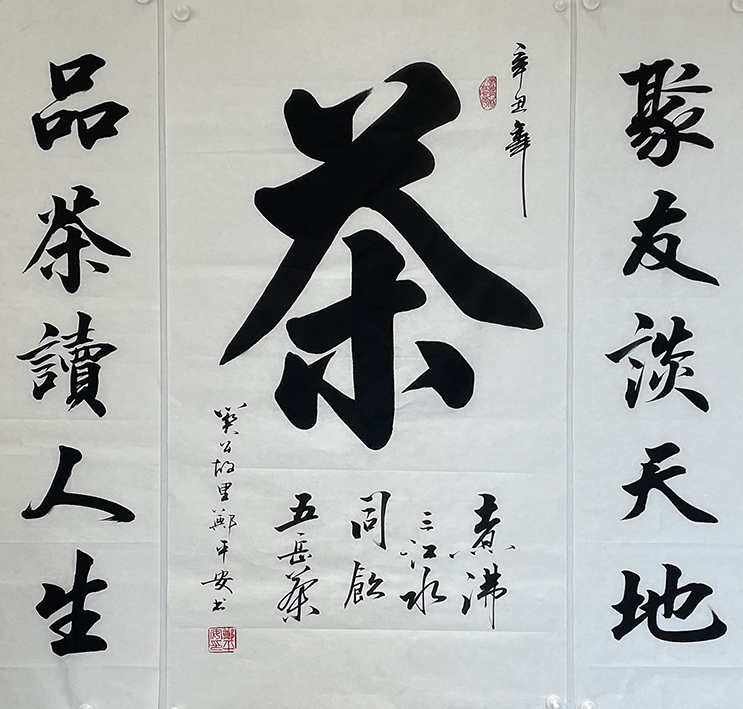 聚友談天地
辛丑年
茶
煮沸
三江水
同飲
五岳茶
樊公故里鄭平安书
品茶讀人生